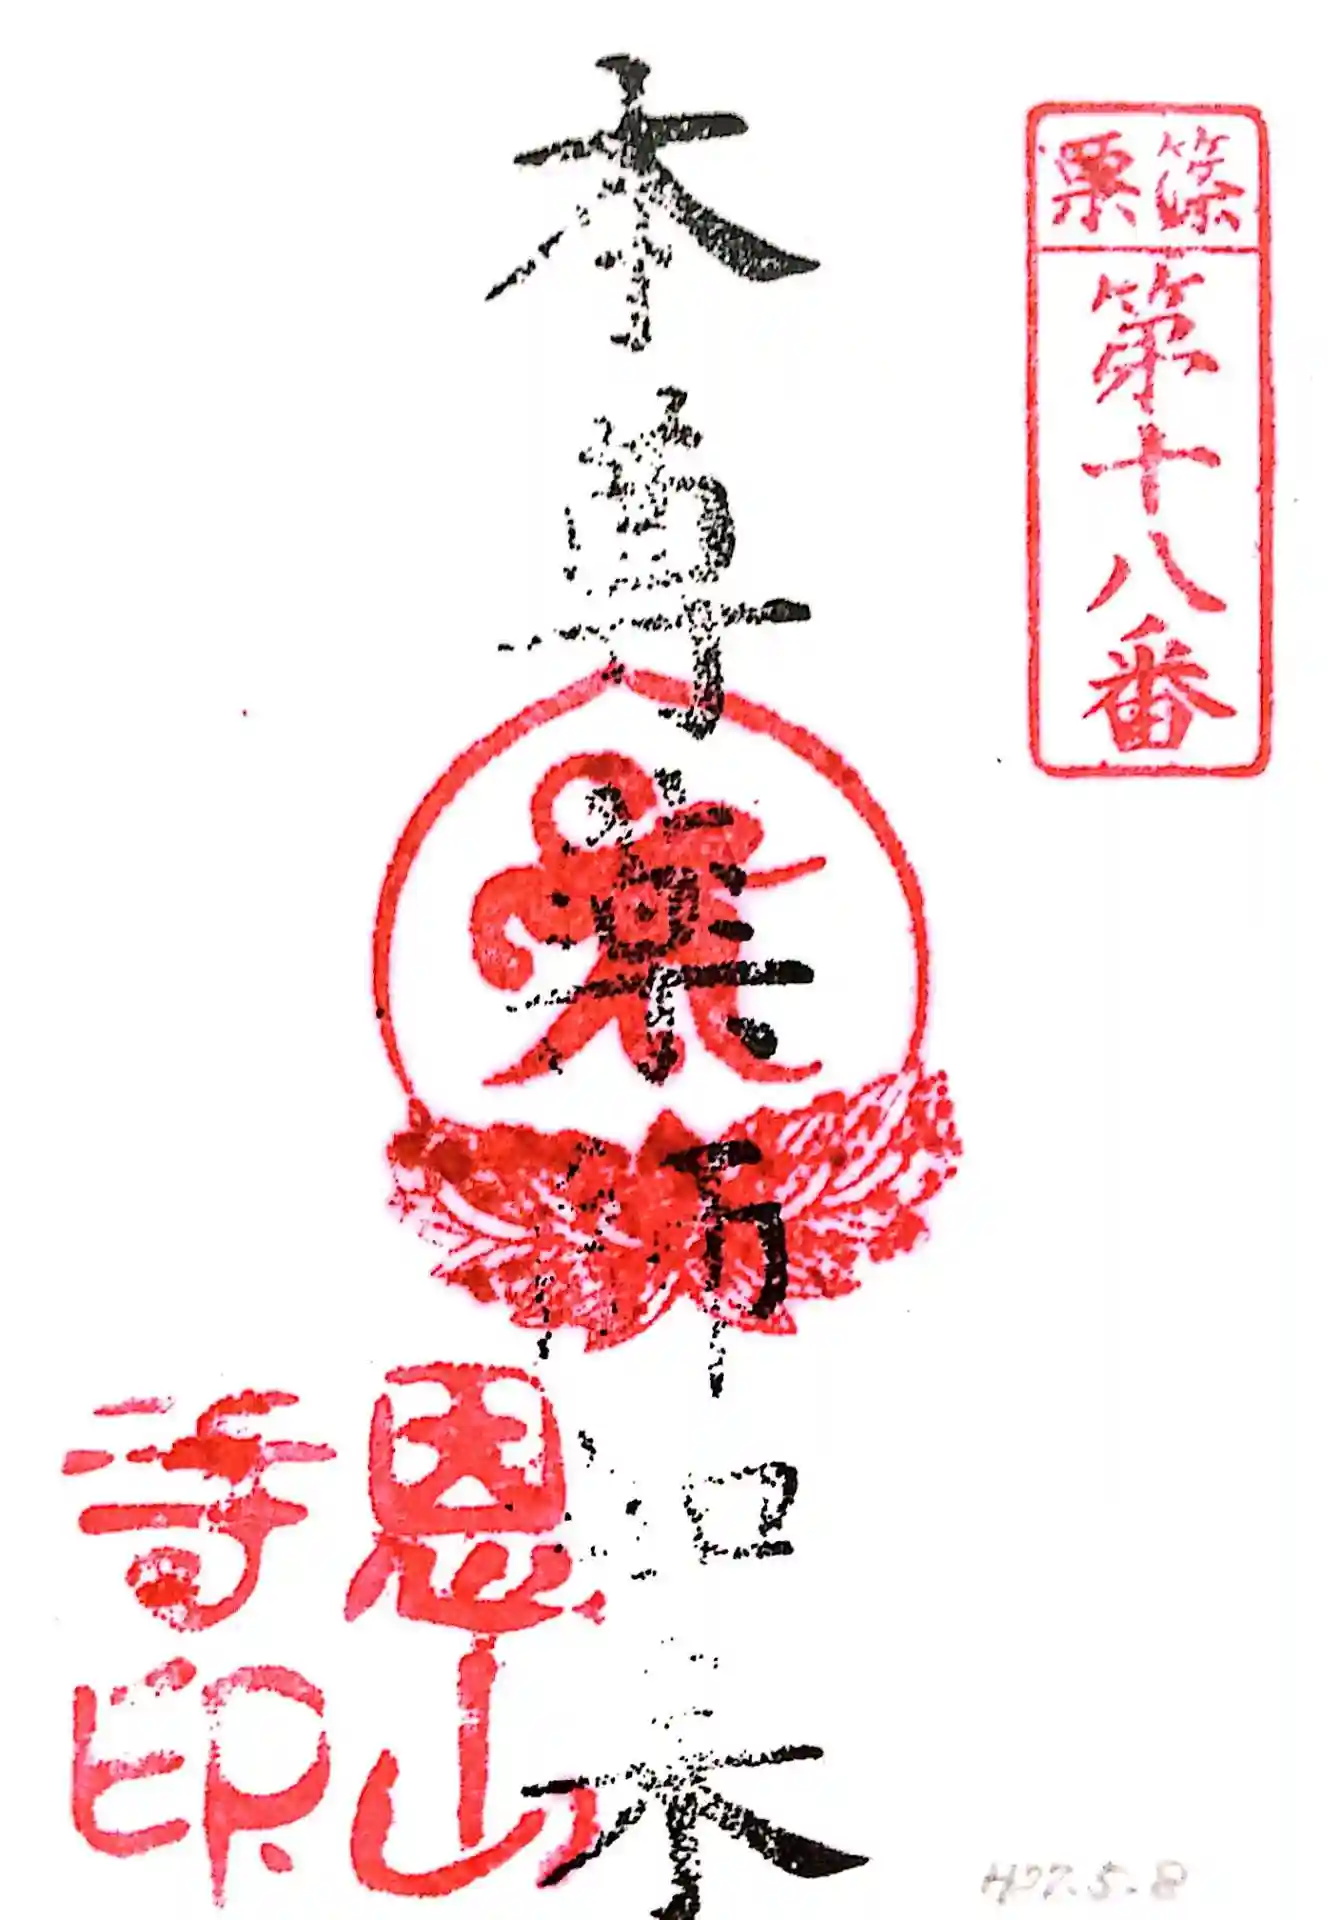 篠栗
第十八番
本尊薬師如来
恩山寺印
H27.5.8